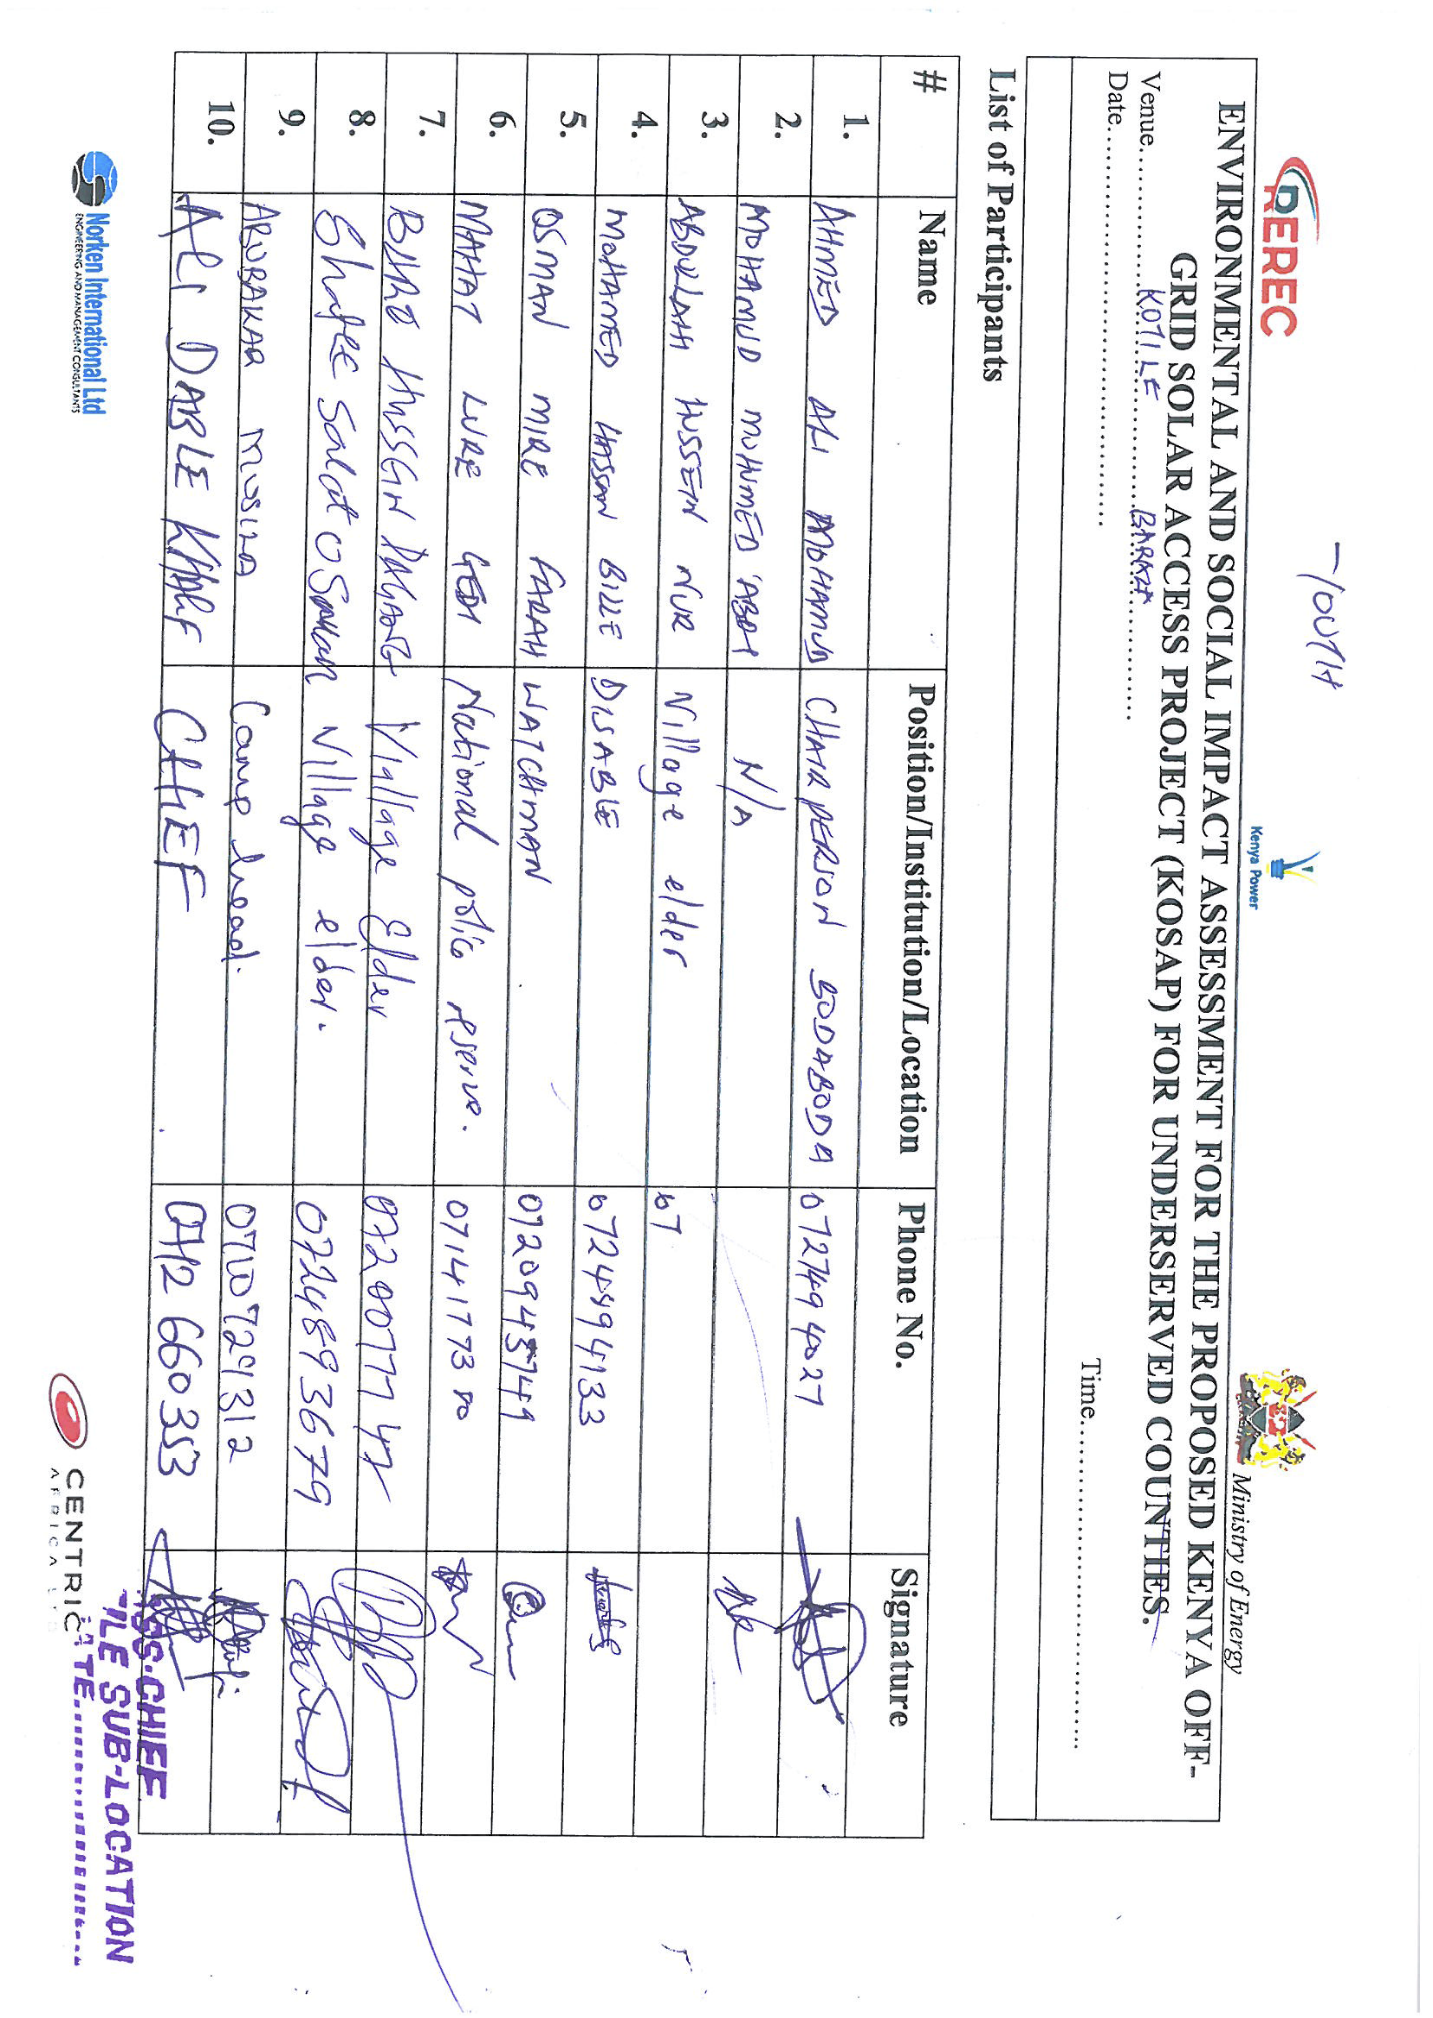 -YOUTH
REREC
Kenya Power
Ministry of Energy
ENVIRONMENTAL AND SOCIAL IMPACT ASSESSMENT FOR THE PROPOSED KENYA OFF-
GRID SOLAR ACCESS PROJECT (KOSAP) FOR UNDERSERVED COUNTIES.
Venue...............KOTILE...............BARAZA...............
Date............................................ Time............................................
List of Participants
# Name Position/Institution/Location Phone No. Signature
1. AHMED ALI MOHAMUD CHAIRPERSON BODABODA 0727494027
2. MOHAMUD MUHUMED ABDI N/A
3. ABDULAHI HUSSEIN NUR Village elder 07
4. MOHAMED HASSAN BILLE DISABLE 0724494133
5. OSMAN MIRE FARAH WATCHMAN
6. MAHAT LURE GEDI National police reserve. 0714177380
7. Village Elder
8. Shafee Salat Osman Village elder. 0724893679
9. ABUBAKAR Camp head. 0710729312
10. ALI DABLE CHIEF 0712660353
Norken International Ltd
ENGINEERING AND MANAGEMENT CONSULTANTS
CENTRIC
AFRICA
CHIEF
SUB-LOCATION